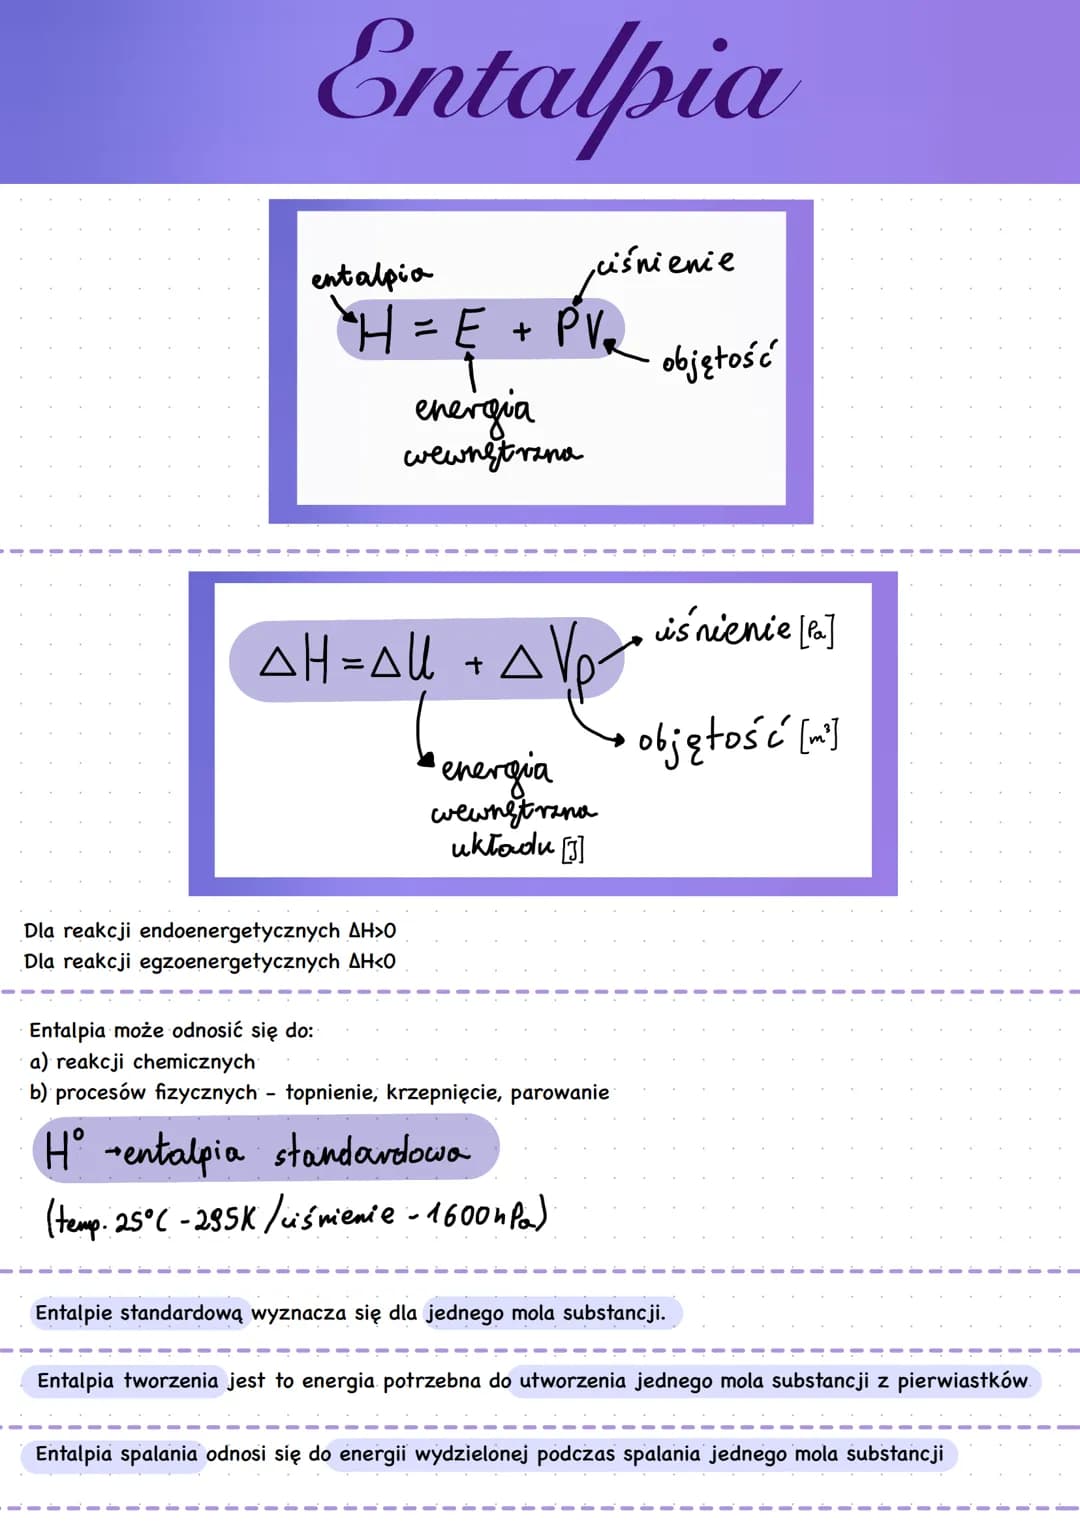 Entalpia
entalpia
ciśnienie
H = E + PV
objętość
energia
wewnętrzna
ΔH = ΔU + ΔVp
ciśnienie [Pa]
objętość [m³]
energia
wewnętrzna
układu [J]
Dla reakcji endoenergetycznych ΔH>0
Dla reakcji egzoenergetycznych ΔH<0
Entalpia może odnosić się do:
a) reakcji chemicznych
b) procesów fizycznych - topnienie, krzepnięcie, parowanie
H° → entalpia standardowa
(temp. 25°C - 295K / ciśnienie - 1600 hPa)
Entalpie standardową wyznacza się dla jednego mola substancji.
Entalpia tworzenia jest to energia potrzebna do utworzenia jednego mola substancji z pierwiastków.
Entalpia spalania odnosi się do energii wydzielonej podczas spalania jednego mola substancji